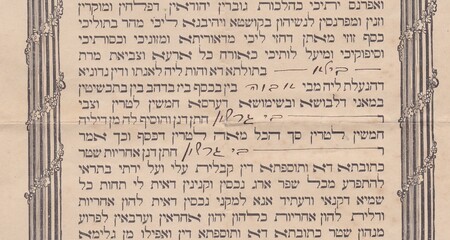 ואפרנס יתיכי כהלכות גוברין יהודאין. דפלחין ומוקרין
וזנין ומפרנסין לנשיהון בקושטא ויהיבנא ליכי מהר בתוליכי
כסף זוזי מאתן דחזי ליכי מדאוריתא ומזוניכי וכסותיכי
וסיפוקיכי ומיעל לותיכי כאורח כל ארעא וצביאת מרת
בילא בתולתא דא והות ליה לאנתו ודין נדוניא
דהנעלת ליה מבי אבוה בין בכסף בין בדהב בין בתכשיטין
במאני דלבושא ובשימושא דערסא חמשין לטרין וצבי
גרשון חתן דנן והוסיף לה מן דיליה
חמשין לטרין סך הכל מאה לטרין דכסף וכך אמר
גרשון חתן דנן אחריות שטר
כתובתא דא ותוספתא דין קבלית עלי ועל ירתי בתראי
להתפרע מכל שפר ארג נכסין וקנינין דאית לי תחות כל
שמיא דקנאי ודעתיד אנא למקני נכסין דאית להון אחריות
ודלית להון אחריות כלהון יהון אחראין וערבאין לפרוע
מנהון שטר כתובתא דא ותוספתא דין ואפילו מן גלימא